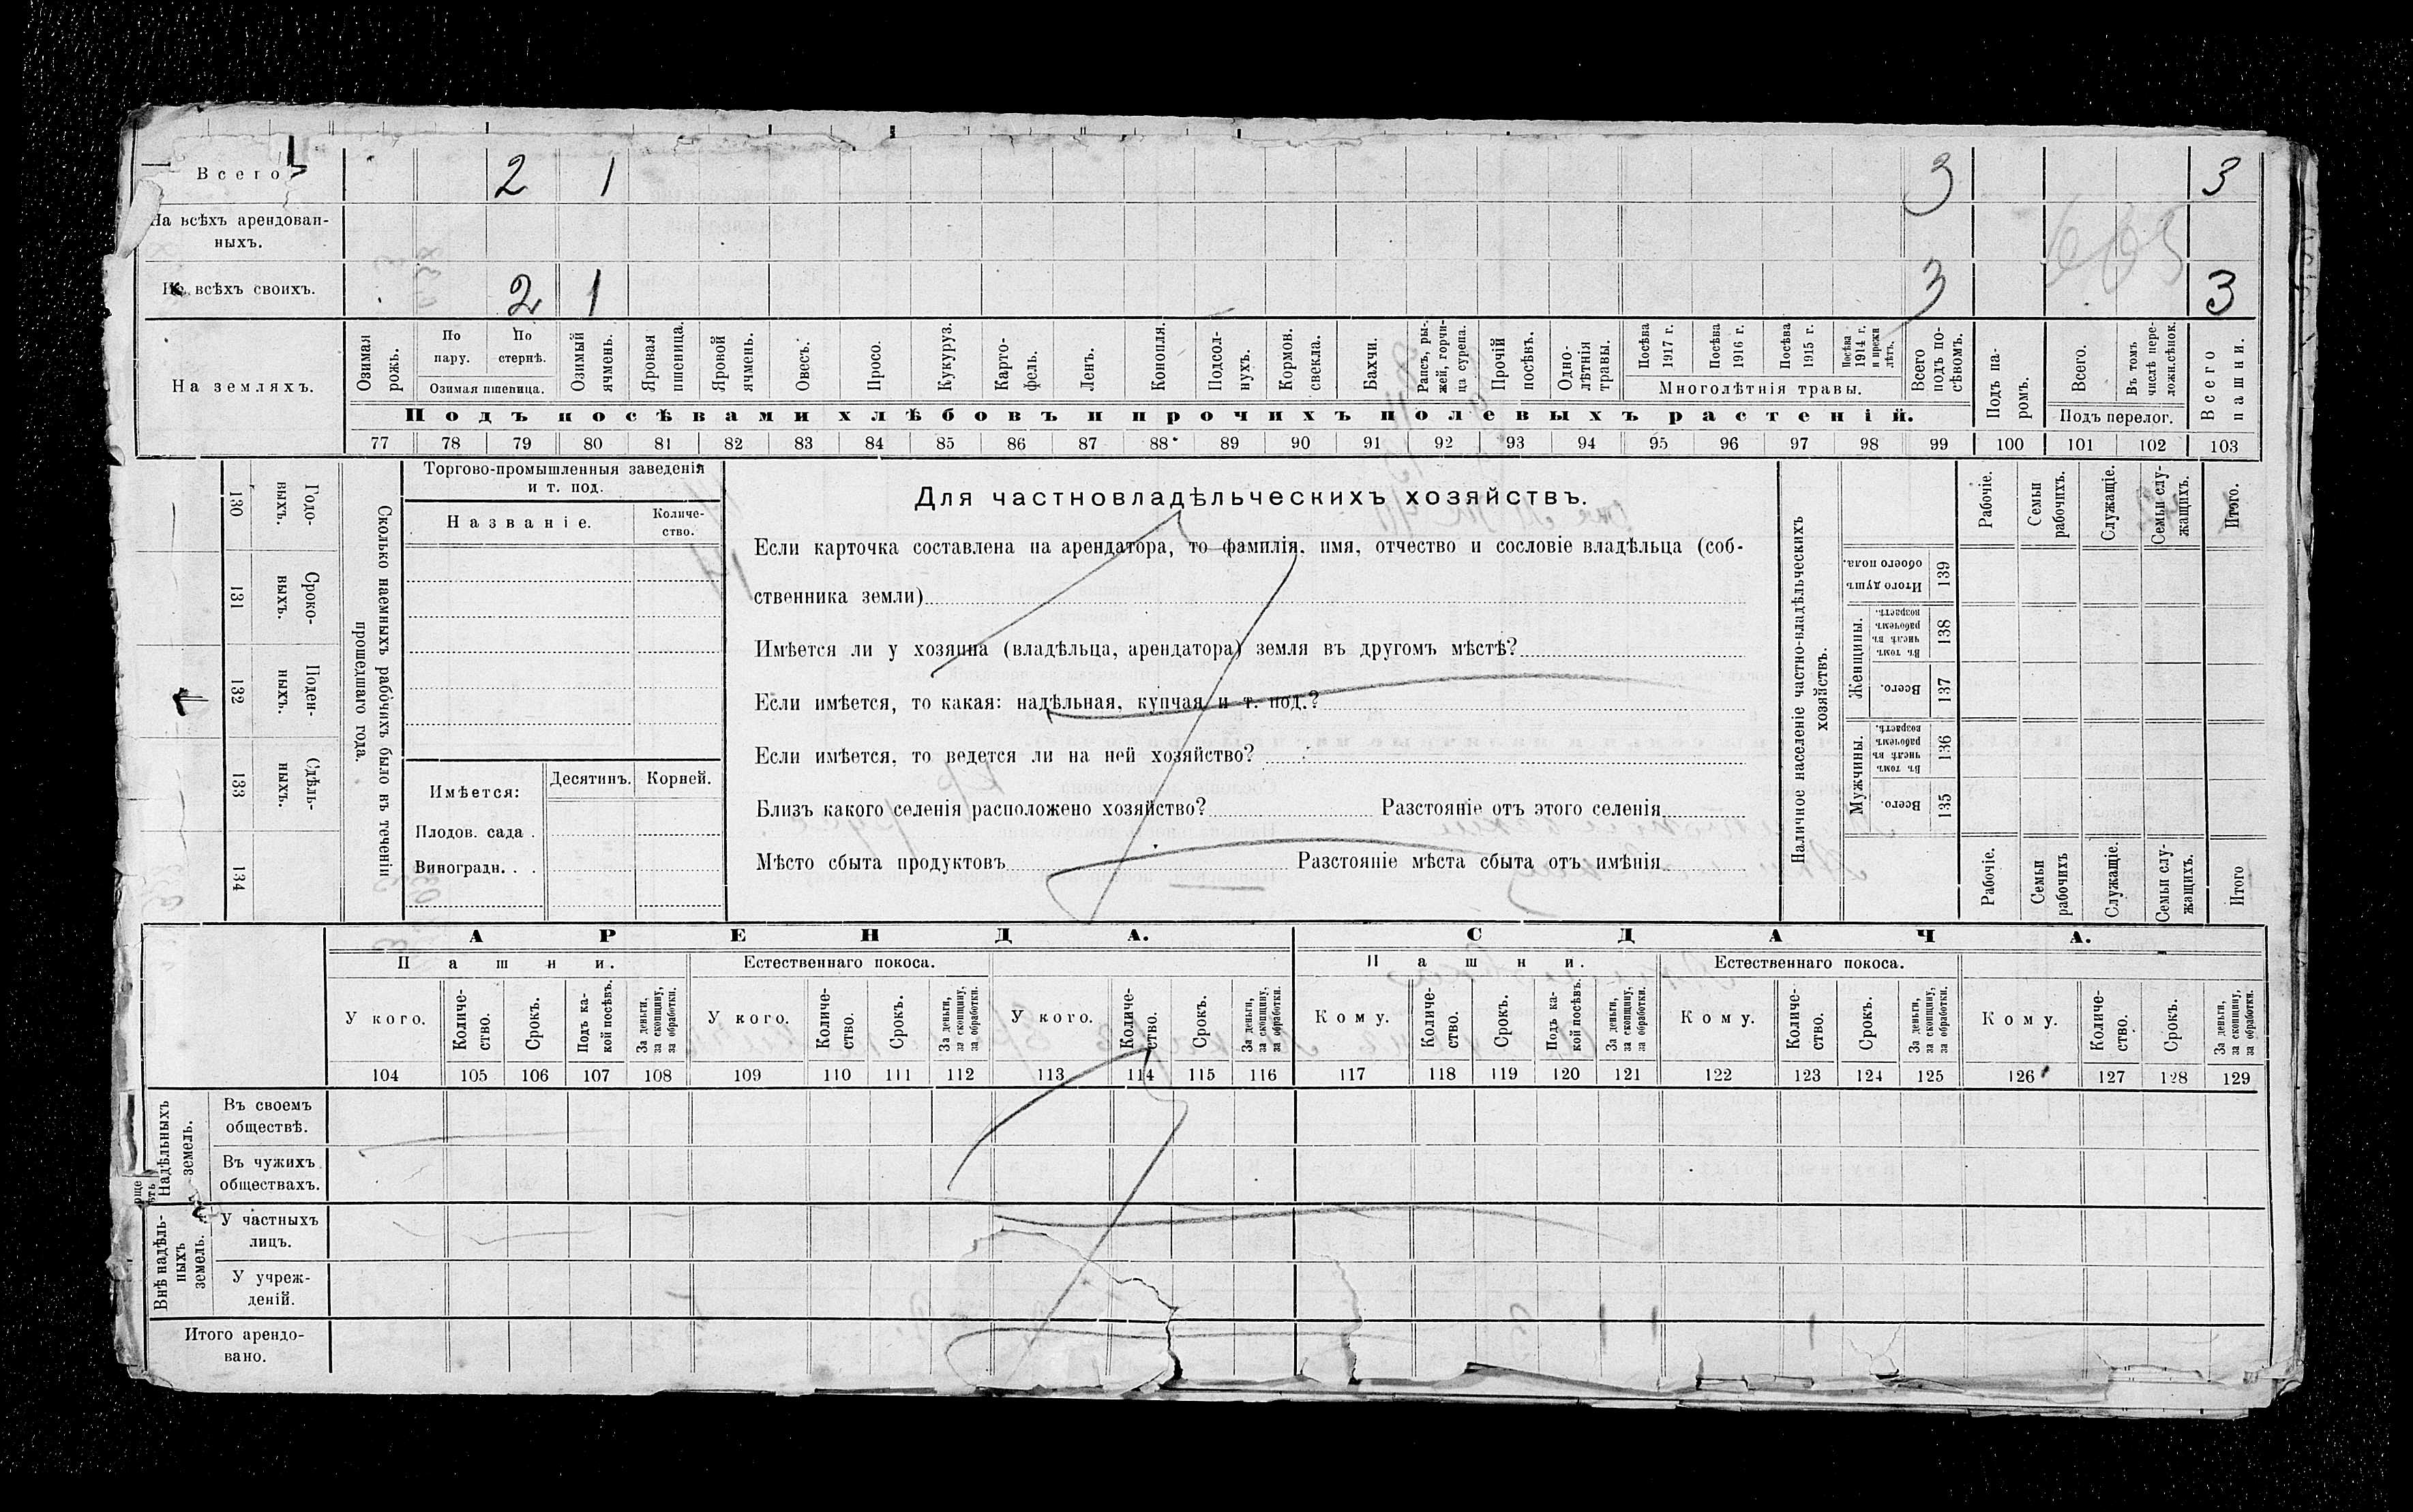 Всего 2 1 3 3
На всѣхъ арендован-
ныхъ.
На всѣхъ своихъ. 2 1 3 3
На земляхъ.
Озимая рожь.
По пару.
По стернѣ.
Озимая пшеница.
Озимый ячмень.
Яровая пшеница.
Яровой ячмень.
Овесъ.
Просо.
Кукуруз.
Карто-
фель.
Ленъ.
Конопля.
Подсол-
нухъ.
Кормов. свекла.
Бахчи.
Рапсъ, ры-
жей, горчи-
ца сурепа.
Прочій посѣвъ.
Одно-
лѣтнія травы.
Посѣва 1917 г.
Посѣва 1916 г.
Посѣва 1915 г.
Посѣва 1914 г. и прежн лѣтъ.
Многолѣтнія травы.
Всего подъ по-
сѣвомъ.
Подъ па-
ромъ.
Всего.
Въ томъ числѣ пере-
ложн.сѣнок.
Подъ перелог.
Всего пашни.
Подъ посѣвами хлѣбовъ и прочихъ полевыхъ растеній.
77 78 79 80 81 82 83 84 85 86 87 88 89 90 91 92 93 94 95 96 97 98 99 100 101 102 103
130 Годо-
выхъ.
131 Сроко-
выхъ.
132 Поден-
ныхъ.
133 Сдѣль-
ныхъ.
134
Сколько наемныхъ рабочихъ было въ теченіи
прошедшаго года.
Торгово-промышленныя заведенія
и т. под.
Названіе.
Количе-
ство.
Имѣется: Десятинъ. Корней.
Плодов. сада .
Виноградн. . .
Для частновладѣльческихъ хозяйствъ.
Если карточка составлена на арендатора, то фамилія, имя, отчество и сословіе владѣльца (соб-
ственника земли)
Имѣется ли у хозяина (владѣльца, арендатора) земля въ другомъ мѣстѣ?
Если имѣется, то какая: надѣльная, купчая и т. под.?
Если имѣется, то ведется ли на ней хозяйство?
Близъ какого селенія расположено хозяйство? Разстояніе отъ этого селенія
Мѣсто сбыта продуктовъ Разстояніе мѣста сбыта отъ имѣнія
Наличное населеніе частно-владѣльческихъ
хозяйствъ.
Рабочіе.
Семьи рабочихъ.
Служащіе.
Семьи слу-
жащихъ.
Итого.
Итого душъ обоего пола. 139
Женщины.
Въ томъ числѣ въ рабочемъ возрастѣ. 138
Всего. 137
Мужчины.
Въ томъ числѣ въ рабочемъ возрастѣ. 136
Всего. 135
Рабочіе.
Семьи рабочихъ
Служащіе.
Семьи слу-
жащихъ.
Итого
АРЕНДА. СДАЧА.
Пашни. Естественнаго покоса. Пашни. Естественнаго покоса.
У кого.
Количе-
ство.
Срокъ.
Подъ ка-
кой посѣвъ.
За деньги, за скопщину, за обработки.
У кого.
Количе-
ство.
Срокъ.
За деньги, за скопщину, за обработки.
У кого.
Количе-
ство.
Срокъ.
За деньги, за скопщину, за обработки.
Кому.
Количе-
ство.
Срокъ.
Подъ ка-
кой посѣвъ.
За деньги, за скопщину, за обработки.
Кому.
Количе-
ство.
Срокъ.
За деньги, за скопщину, за обработки.
Кому.
Количе-
ство.
Срокъ.
За деньги, за скопщину, за обработки.
104 105 106 107 108 109 110 111 112 113 114 115 116 117 118 119 120 121 122 123 124 125 126 127 128 129
Надѣльныхъ земель.
Въ своемъ
обществѣ.
Въ чужихъ
обществахъ.
Внѣ надѣль-
ныхъ земель.
У частныхъ
лицъ.
У учреж-
деній.
Итого арендо-
вано.